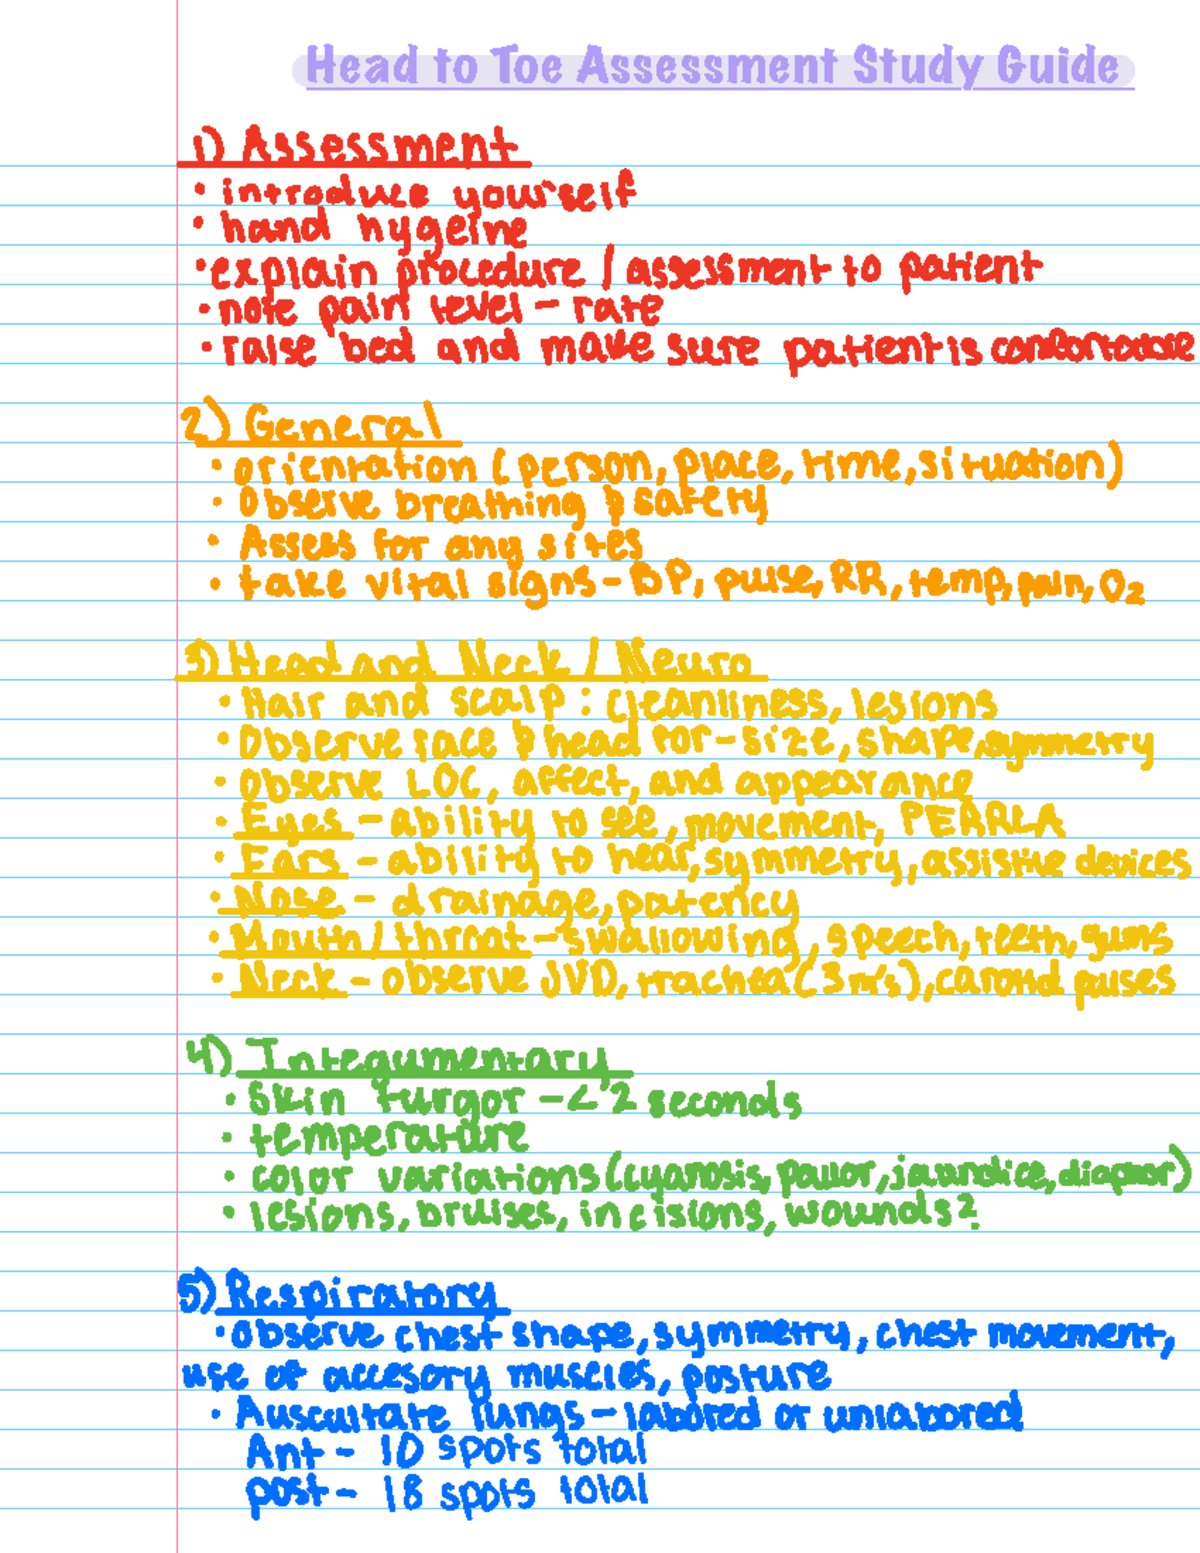 Head to Toe Assessment Study Guide
1) Assessment
• introduce yourself
• hand hygeine
• explain procedure / assessment to patient
• note pain level – rate
• raise bed and make sure patient is comfortable
2) General
• orientation (person, place, time, situation)
• Observe breathing & safety
• Assess for any sites
• take vital signs – BP, pulse, RR, temp, pain, O2
3) Head and Neck / Neuro
• Hair and scalp : cleanliness, lesions
• Observe face & head for – size, shape, symmetry
• Observe LOC, affect, and appearance
• Eyes – ability to see, movement, PEARLA
• Ears – ability to hear, symmetry, assistive devices
• Nose – drainage, patency
• Mouth / throat – swallowing, speech, teeth, gums
• Neck – observe JVD, trachea (3 m's), carotid pulses
4) Integumentary
• Skin turgor – < 2 seconds
• temperature
• color variations (cyanosis, pallor, jaundice, diaphor)
• lesions, bruises, incisions, wounds?
5) Respiratory
• Observe chest shape, symmetry, chest movement,
use of accesory muscles, posture
• Auscultate lungs – labored or unlabored
Ant – 10 spots total
post – 18 spots total